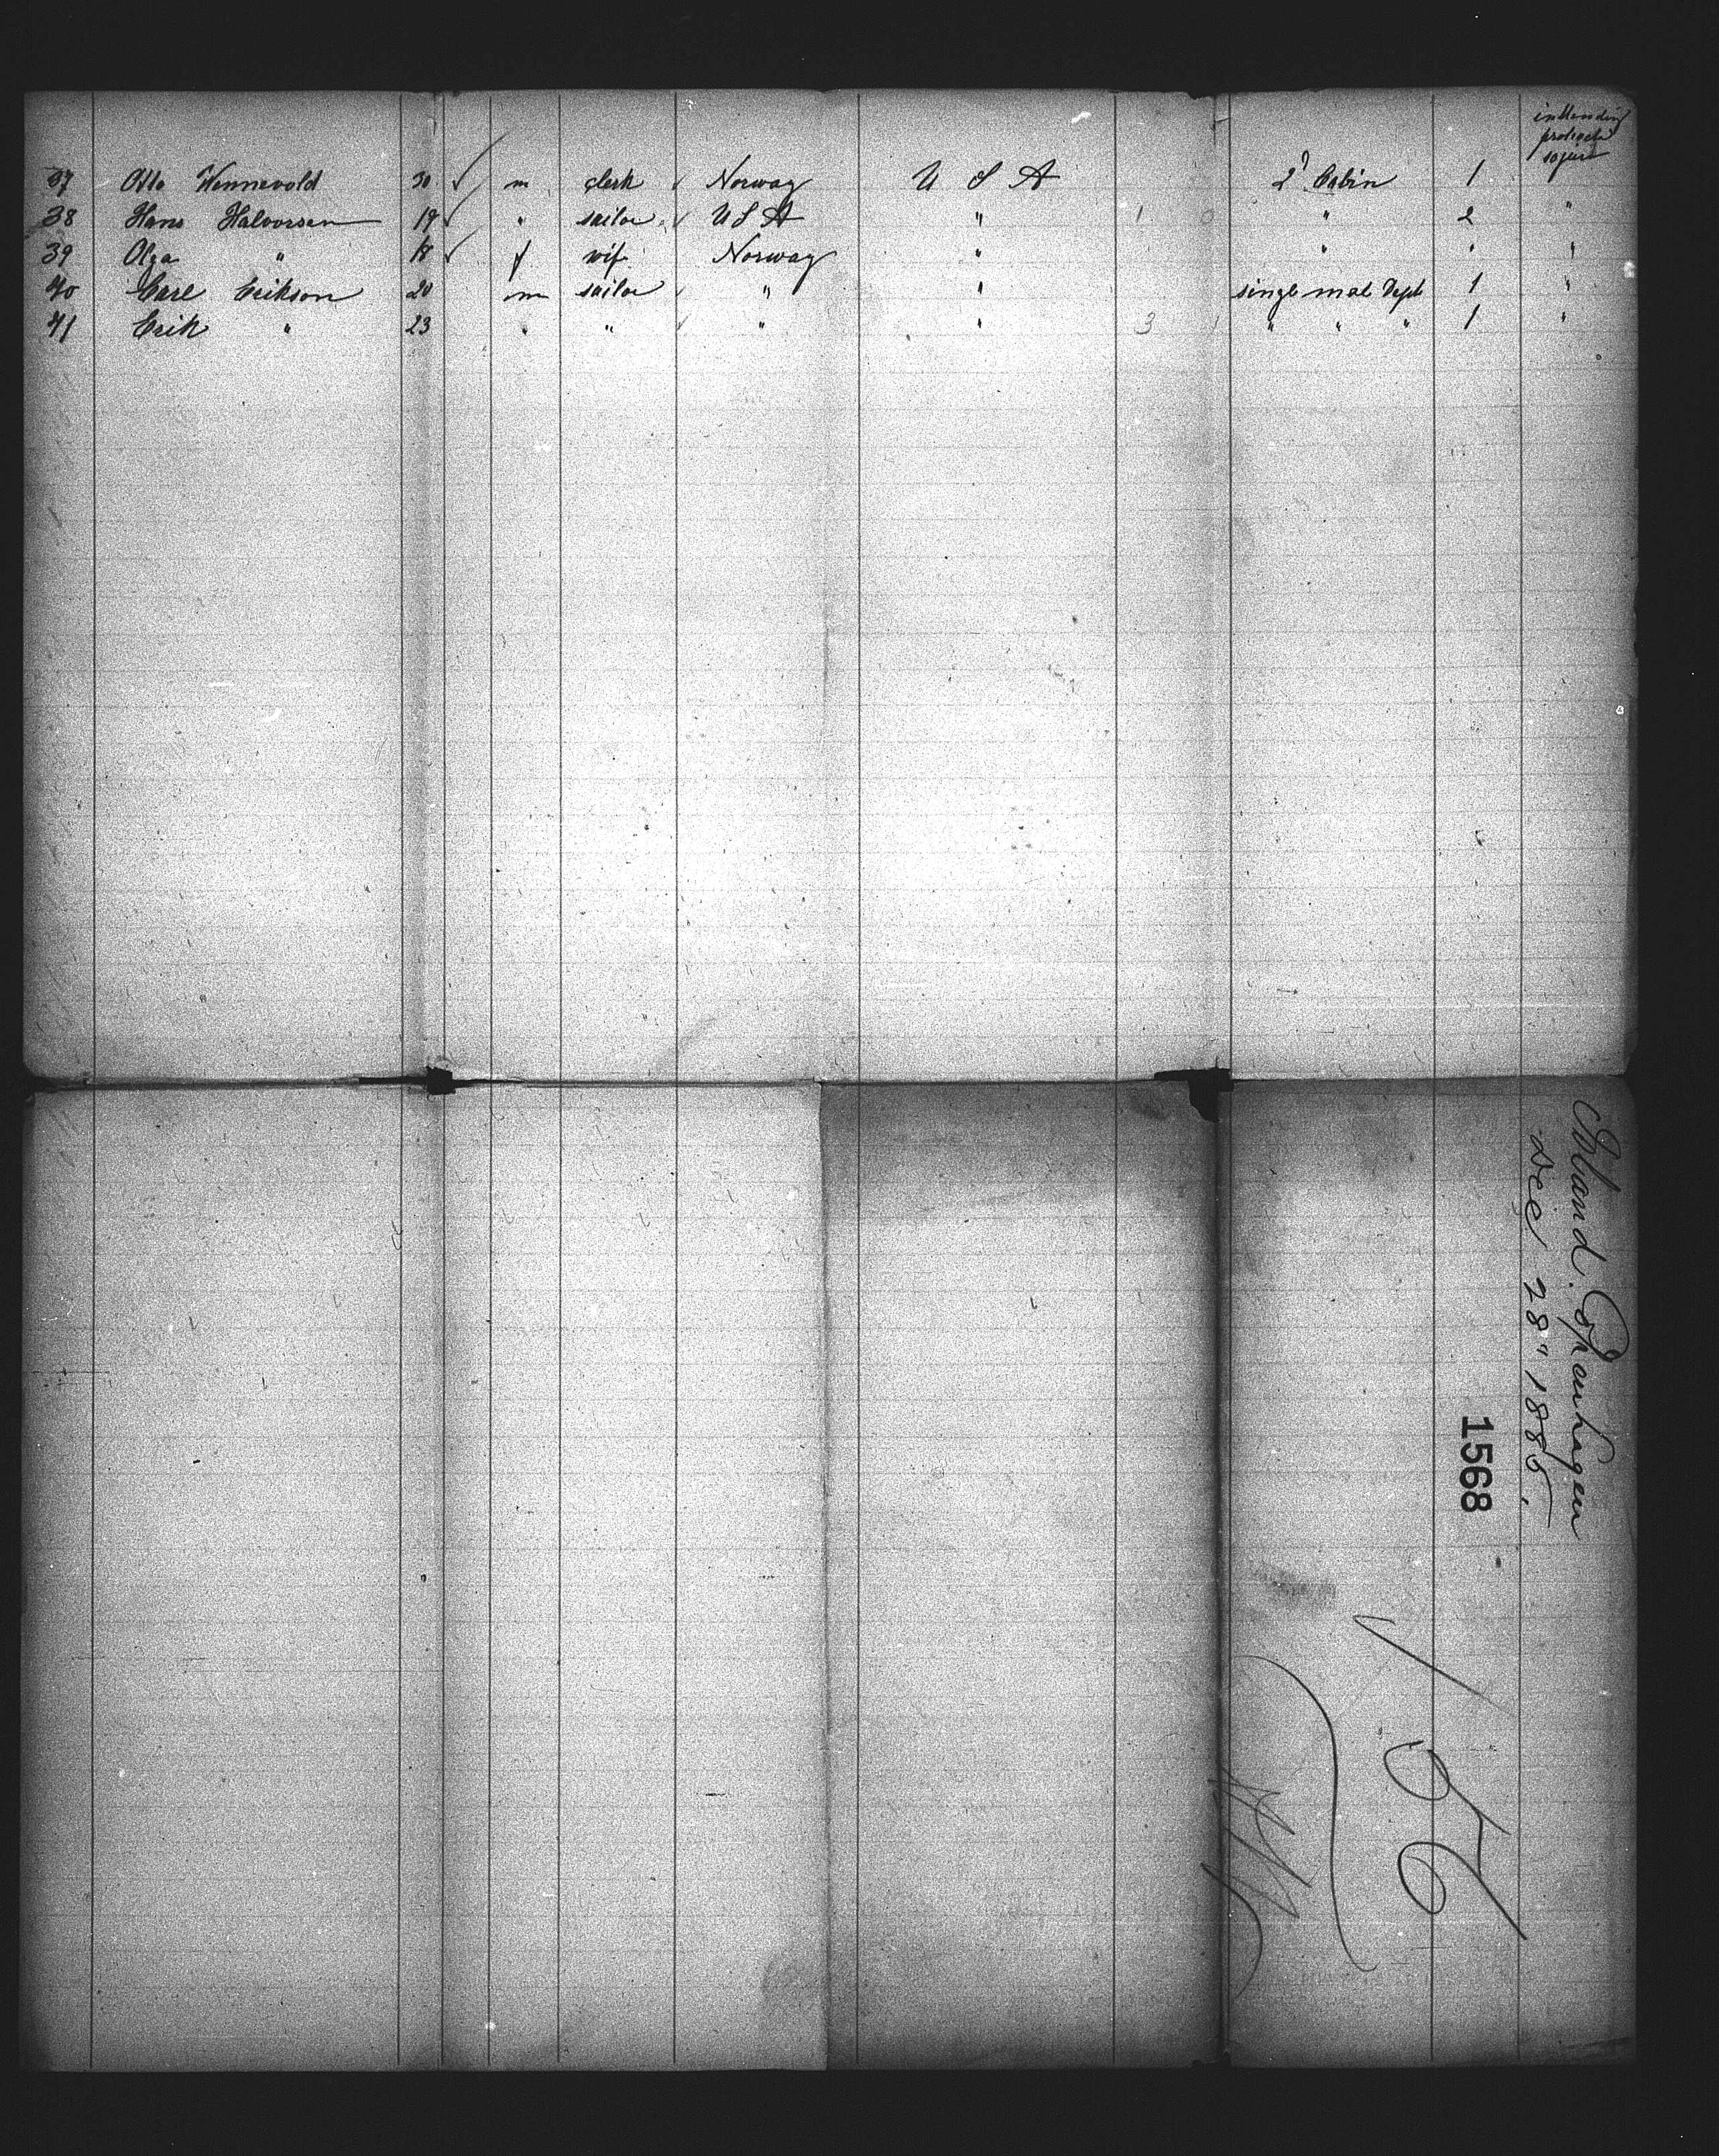 intending
protracted
sojurn
37 Otto Wennevold 30 ✓ m clerk ✓ Norway U S A 2d Cabin 1
38 Hans Halvorsen 19 ✓ " sailor ✓ U S A " 1 0 " 2 "
39 Olga " 18 ✓ f wife Norway " " " "
40 Carl Erikson 20 m sailor " " single male Dept 1 "
41 Erik " 23 " " ✓ " " 3 " " " 1 "
Island. Copenhagen
Dec 28" 1885.
1568